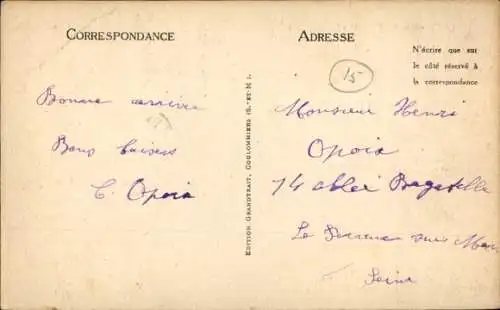 CORRESPONDANCE
Bonne arrivée
Bons baisers
C. Opoix
EDITION GRANDTRAIT, COULOMMIERS (S.-ET-M.).
ADRESSE
N'écrire que sur
le côté réservé à
la correspondance
15
Monsieur Henri
Opoix
74 allée Bagatelle
Le sur
Seine